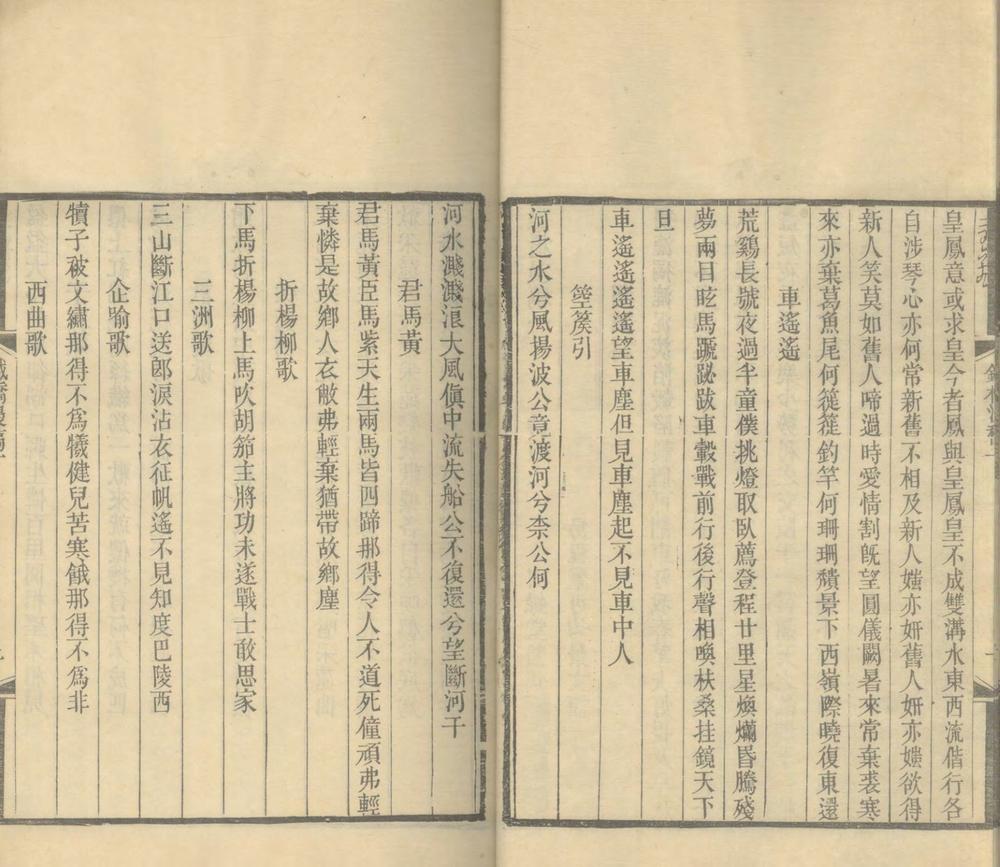 皇鳳意或求皇今者鳳與皇鳳皇不成雙溝水東西流偕行各
自涉琴心亦何常新舊不相及新人媸亦妍舊人妍亦媸欲得
新人笑莫如舊人啼過時愛情割旣望圓儀闕暑來常棄裘寒
來亦棄葛魚尾何簁簁釣竿何珊珊穨景下西嶺際曉復東還
車遙遙
荒鷄長號夜過半童僕挑燈取臥薦登程廿里星煥爛昏騰殘
夢兩目眩馬蹏跛車轂戰前行後行聲相喚扶桑挂鏡天下
旦
車遙遙遙遙望車塵但見車塵起不見車中人
箜篌引
河之水兮風揚波公竟渡河兮柰公何
河水濺濺浪大風傎中流失船公不復還兮望斷河干
君馬黃
君馬黃臣馬紫天生兩馬皆四蹄那得令人不道死僮頑弗輕
棄憐是故鄉人衣敝弗輕棄猶帶故鄉塵
折楊柳歌
下馬折楊柳上馬吹胡笳主將功未遂戰士敢思家
三洲歌
三山斷江口送郎淚沾衣征帆遙不見知度巴陵西
企喻歌
犢子破文繡那得不爲犧健兒苦寒餓那得不爲非
西曲歌